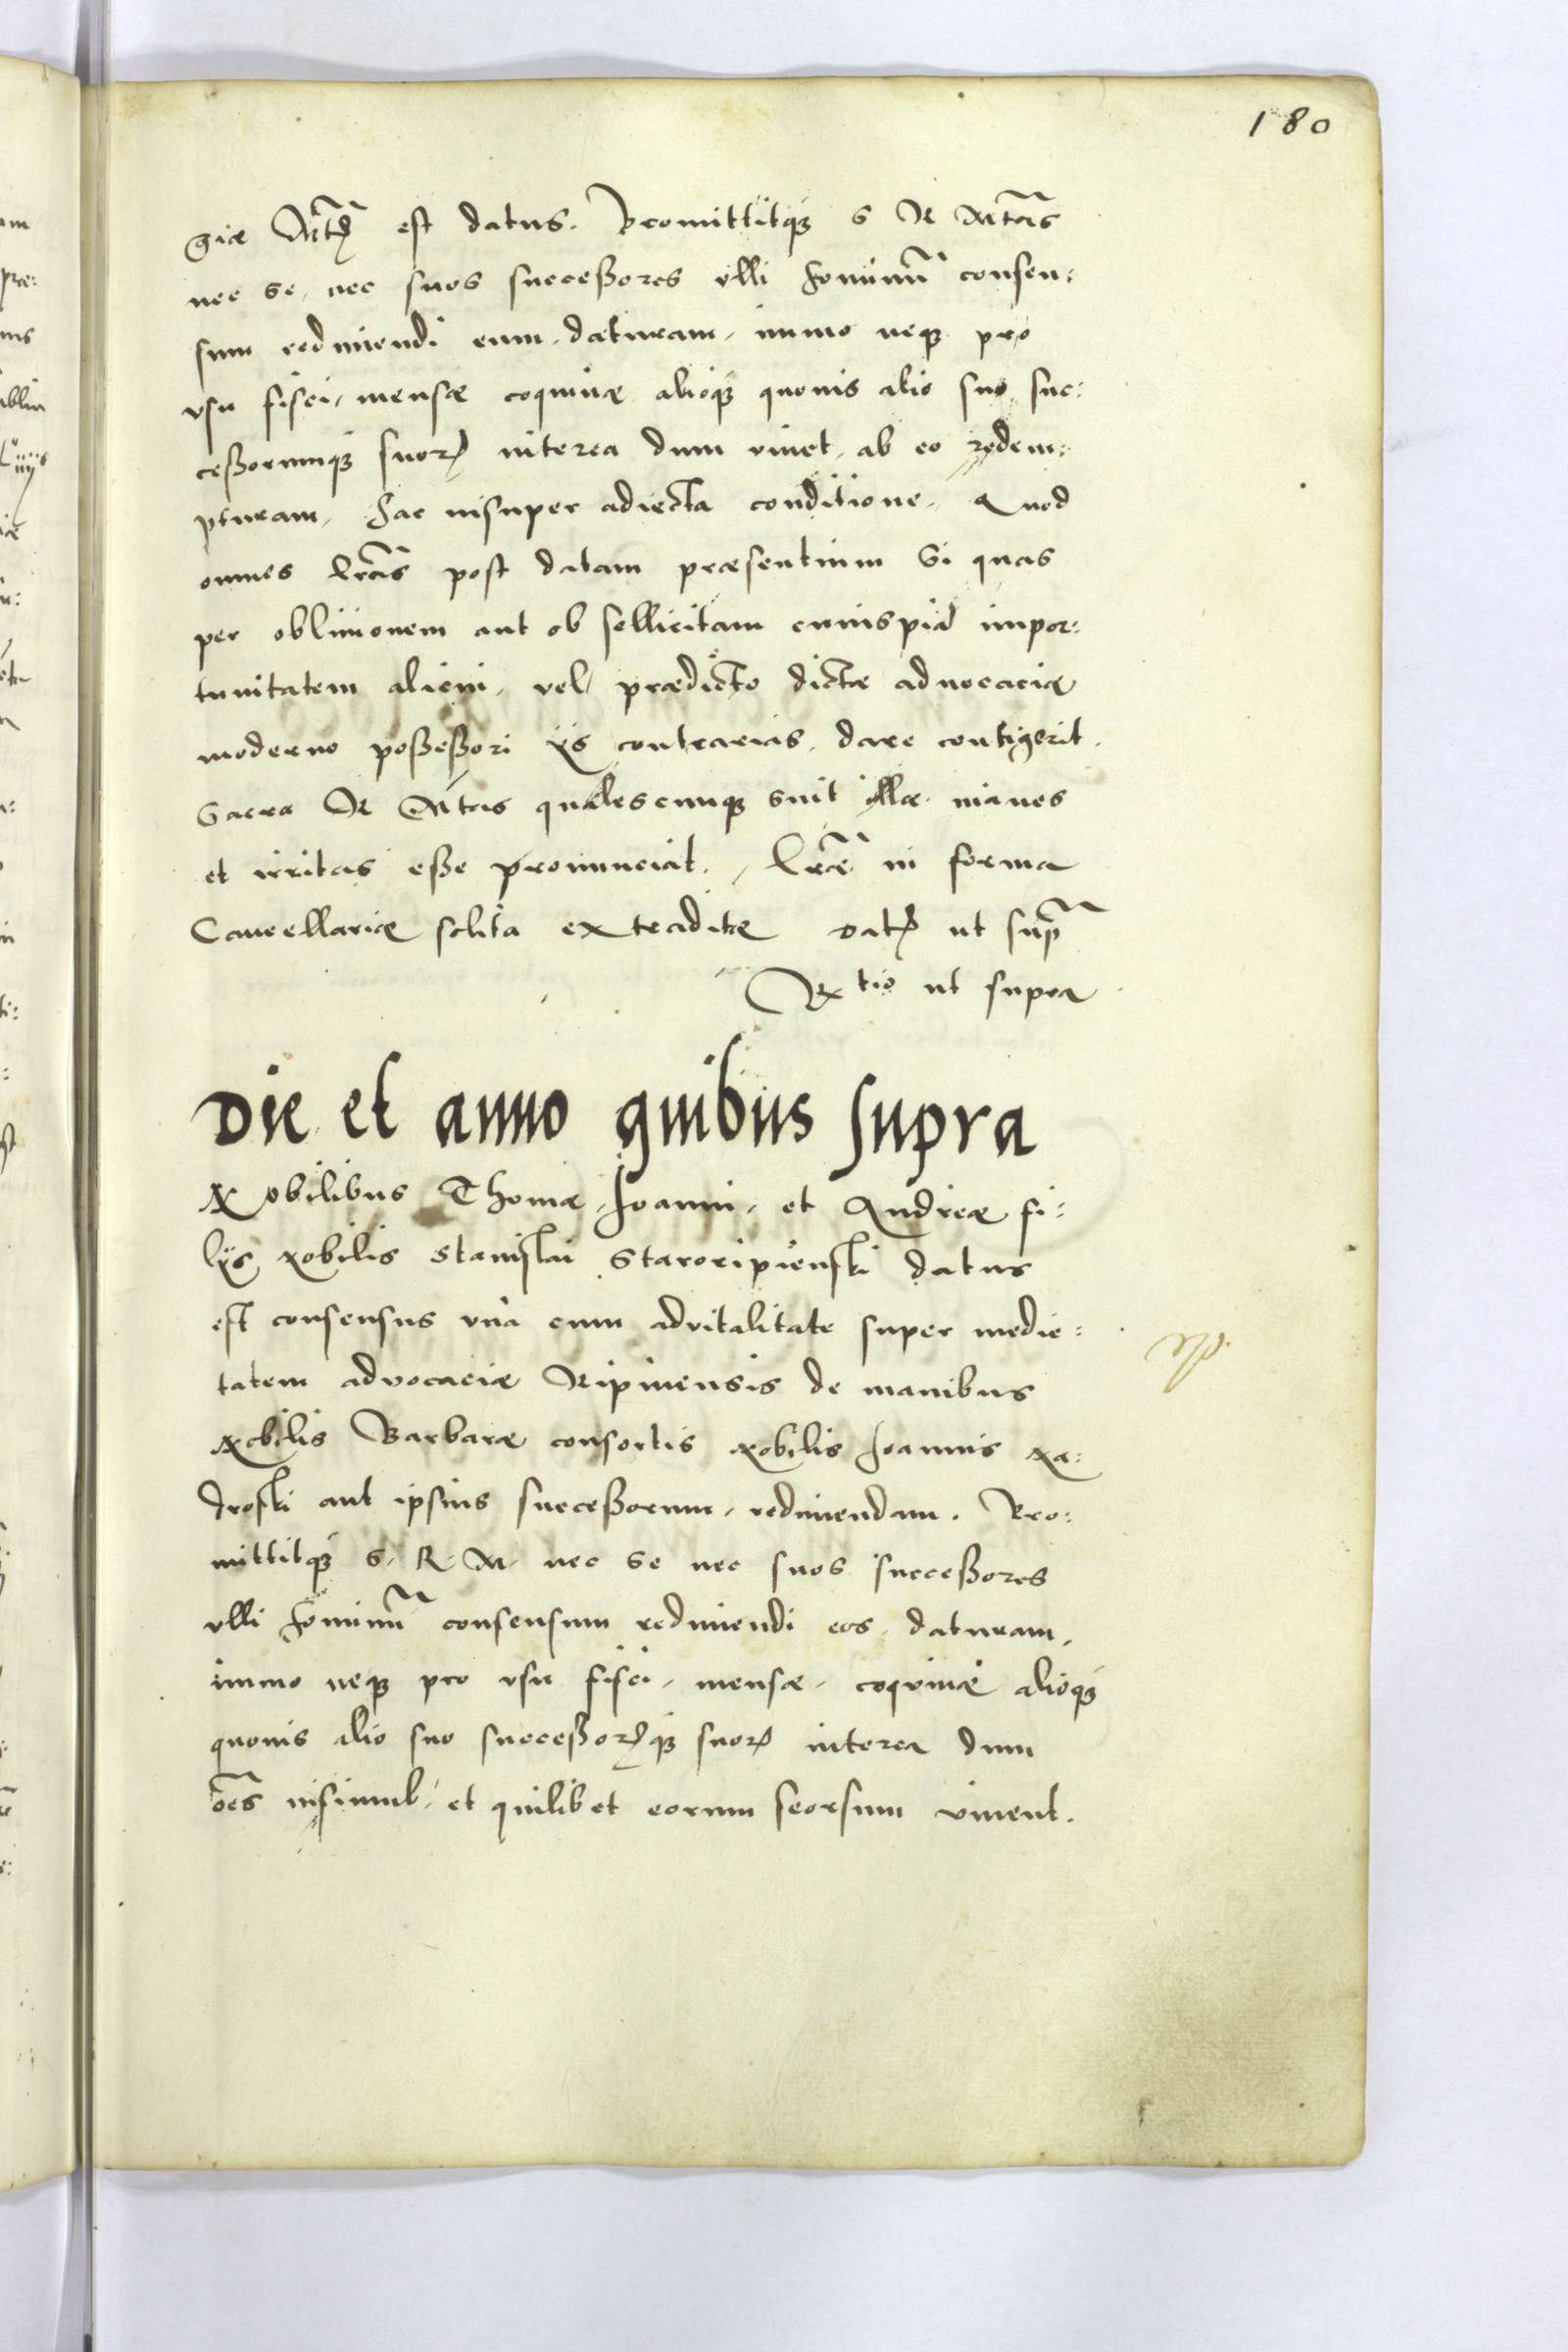 180
giæ Mtq̃ est datus. Promittitq́ꝫ S R Mtãs
nec se, nec suos succeßores ulli hominũ consen:
sum redimendi eum, daturam, immo neqꝫ pro
usu fisci, mensæ coquinæ alioqꝫ quovis alio suo, suc:
ceßorumqꝫ suorꝝ interea dum vivet, ab eo redem:
pturam, hac insuper adiecta conditione, Quod
omnes lrãs post datam præsentium Si quas
per oblivionem aut ob sollicitam cuiuspiã impor:
tunitatem alicui, vel prædicto dictæ advocaciæ
moderno poßeßori ijs contrarias, dare contigerit.
Sacra R Mtas qualescunqꝫ sint illæ, inanes
et irritas eße pronunciat. Lræ̃ in forma
Cancellariæ solita extraditæ Datꝝ ut supr̃
R tio ut supra
Die et anno quibus supra
Nobilibus Thomæ, Joanni, et Andreæ fi:
lijs Nobilis Stanislai Staroripienski datus
est consensus unà cum advitalitate super medie:
tatem advocaciæ Ripinensis de manibus
Nobilis Barbaræ consortis Nobilis Joannis Na:
droski aut ipsius succeßorum, redimendam. Pro:
mittitqꝫ S. R. M. nec se nec suos succeßores
ulli hominũ consensum redimendi eos, daturam,
immo neqꝫ pro usu fisci, mensæ, coquinæ alioqꝫ
quovis alio suo succeßorꝝqꝫ suorꝝ interea dum
oẽs insimul, et quilibet eorum seorsum vivent.